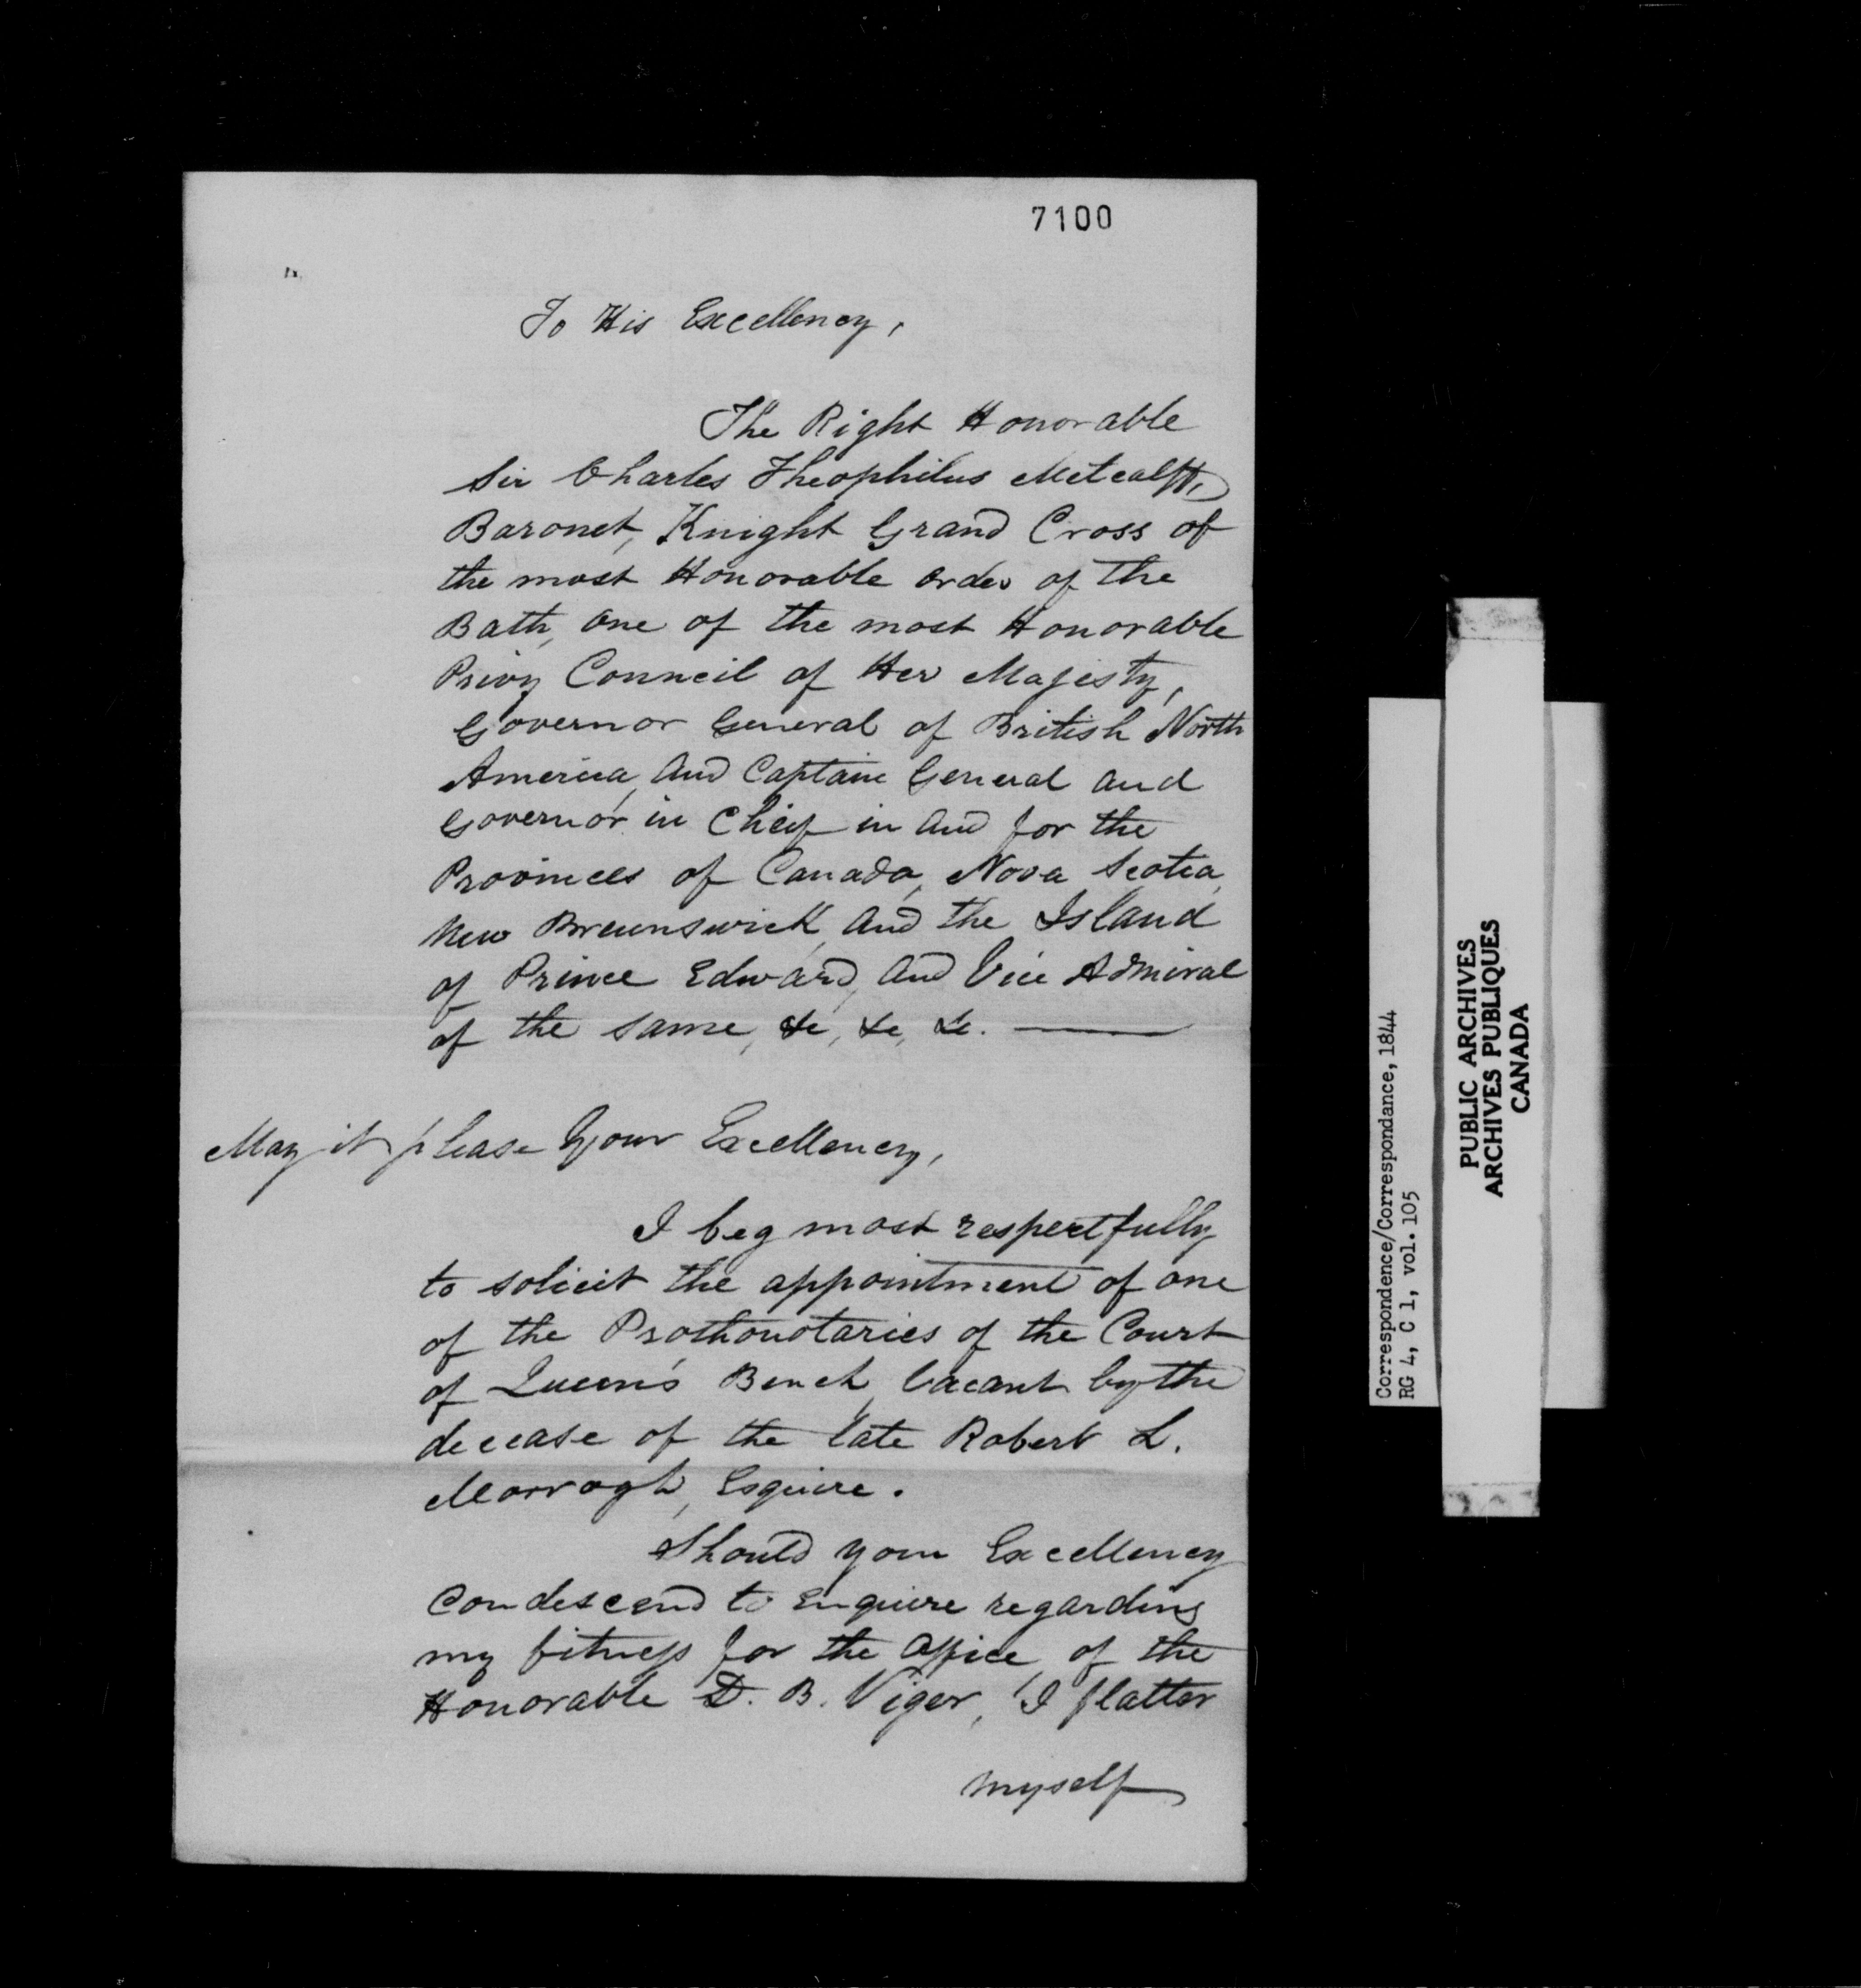 7100
To His Excellency,
The Right Honorable
Sir Charles Theophilus Metcalfe,
Baronet, Knight Grand Cross of
the most Honorable order of the
Bath, one of the most Honorable
Privy Council of Her Majesty,
Governor General of British North
America, and Captain General and
Governor in Chief in and for the
Provinces of Canada, Nova Scotia,
New Brunswick, and the Island
of Prince Edward, and Vice Admiral
of the same, &c, &c, &c. —
May it please Your Excellency,
I beg most respectfully
to solicit the appointment of one
of the Prothonotaries of the Court
of Queen's Bench, vacant by the
decease of the late Robert L.
Morrogh, Esquire.
Should your Excellency
condescend to enquire regarding
my fitness for the office, of the
Honorable D. B. Viger, I flatter
myself
Correspondence/Correspondance, 1844
RG 4, C 1, vol. 105
PUBLIC ARCHIVES
ARCHIVES PUBLIQUES
CANADA